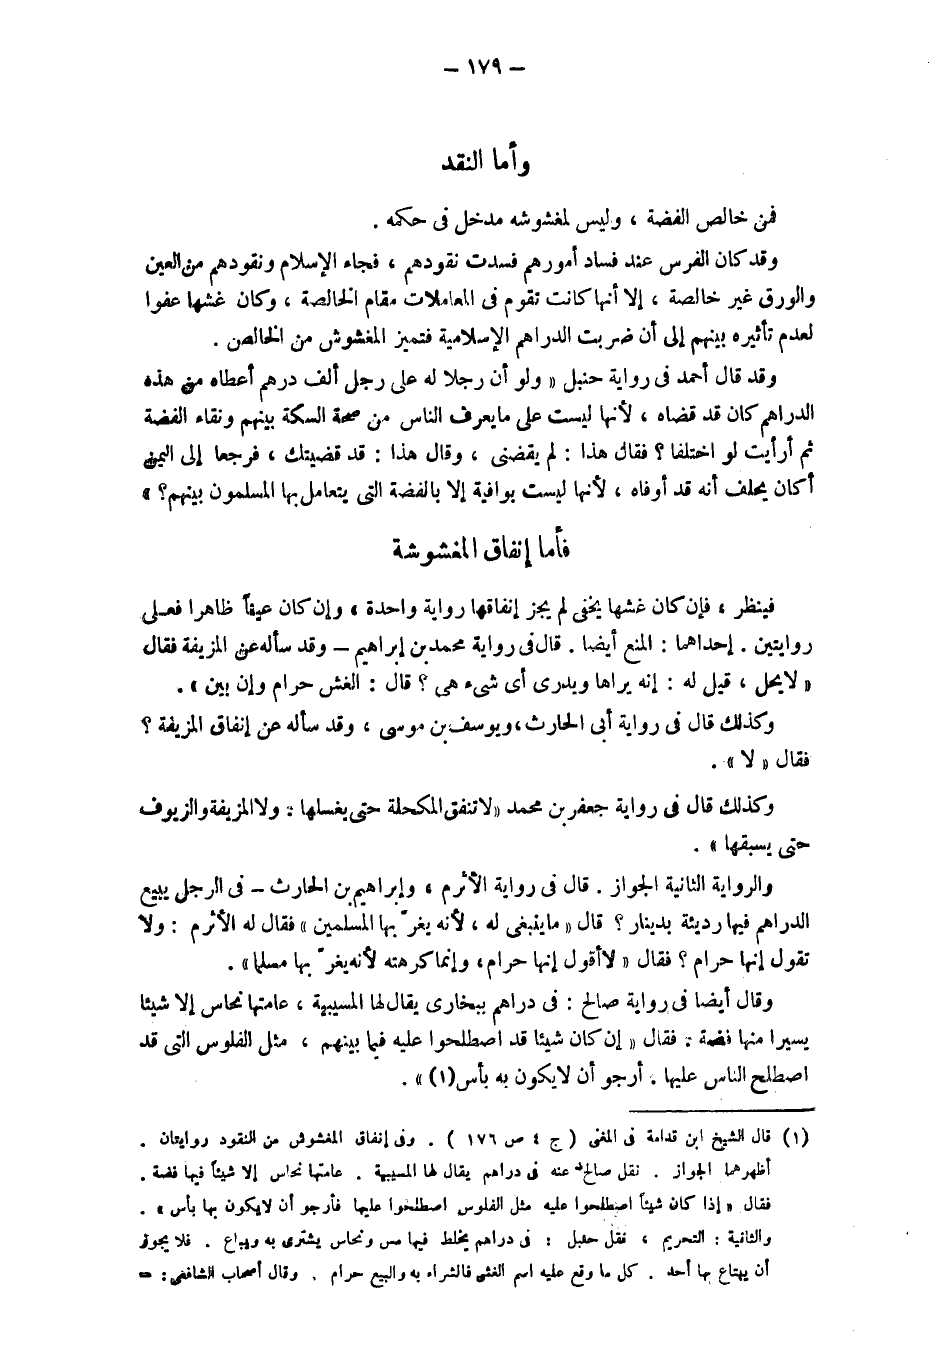 – ١٧٩ –
وأما النقد
فمن خالص الفضة ، وليس لمغشوشه مدخل فى حكمه .
وقد كان الفرس عند فساد أمورهم فسدت نقودهم ، فجاء الإسلام ونقودهم من العين
والورق غير خالصة ، إلا أنها كانت تقوم فى المعاملات مقام الخالصة ، وكان غشها عفوا
لعدم تأثيره بينهم إلى أن ضربت الدراهم الإسلامية فتميز المغشوش من الخالص .
وقد قال أحمد فى رواية حنبل « ولو أن رجلا له على رجل ألف درهم أعطاه من هذه
الدراهم كان قد قضاه ، لأنها ليست على مايعرف الناس من صحة السكة بينهم ونقاء الفضة
ثم أرأيت لو اختلفا ؟ فقال هذا : لم يقضنى ، وقال هذا : قد قضيتك ، فرجعا إلى اليمين
أكان يحلف أنه قد أوفاه ، لأنها ليست بوافية إلا بالفضة التى يتعامل بها المسلمون بينهم؟ »
فأما إنفاق المغشوشة
فينظر ، فإن كان غشها يخفى لم يجز إنفاقها رواية واحدة ، وإن كان عيفاً ظاهرا فعلى
روايتين . إحداهما : المنع أيضا . قال فى رواية محمد بن إبراهيم – وقد سأله عن المزيفة فقال
« لايحل ، قيل له : إنه يراها ويدرى أى شىء هى ؟ قال : الغش حرام وإن بين » .
وكذلك قال فى رواية أبى الحارث ، ويوسف بن موسى ، وقد سأله عن إنفاق المزيفة ؟
فقال « لا » .
وكذلك قال فى رواية جعفر بن محمد « لاتنفق المكحلة حتى يغسلها : ولا المزيفة والزيوف
حتى يسبقها » .
والرواية الثانية الجواز . قال فى رواية الأثرم ، وإبراهيم بن الحارث – فى الرجل يبيع
الدراهم فيها رديئة بدينار ؟ قال « ماينبغى له ، لأنه يغرّ بها المسلمين » فقال له الأثرم : ولا
تقول إنها حرام ؟ فقال « لا أقول إنها حرام ، وإنما كرهته لأنه يغرّ بها مسلما » .
وقال أيضا فى رواية صالح : فى دراهم ببخارى يقال لها المسيبية ، عامتها نحاس إلا شيئا
يسيرا منها فضة : فقال « إن كان شيئا قد اصطلحوا عليه فيما بينهم ، مثل الفلوس التى قد
اصطلح الناس عليها . أرجو أن لايكون به بأس (١) » .
(١) قال الشيخ ابن قدامة فى المغنى ( ج ٤ ص ١٧٦ ) . وفى إنفاق المغشوش من النقود روايتان .
أظهرهما الجواز . نقل صالح عنه فى دراهم يقال لها المسيبية . عامتها نحاس إلا شيئاً فيها فضة .
فقال « إذا كان شيئاً اصطلحوا عليه مثل الفلوس اصطلحوا عليها فأرجو أن لايكون بها بأس » .
والثانية : التحريم ، فنقل حنبل : فى دراهم يخلط فيها مس ونحاس يشترى به ويباع . فلا يجوز
أن يبتاع بها أحد . كل ما وقع عليه اسم الغش فالشراء به والبيع حرام . وقال أصحاب الشافعى : =